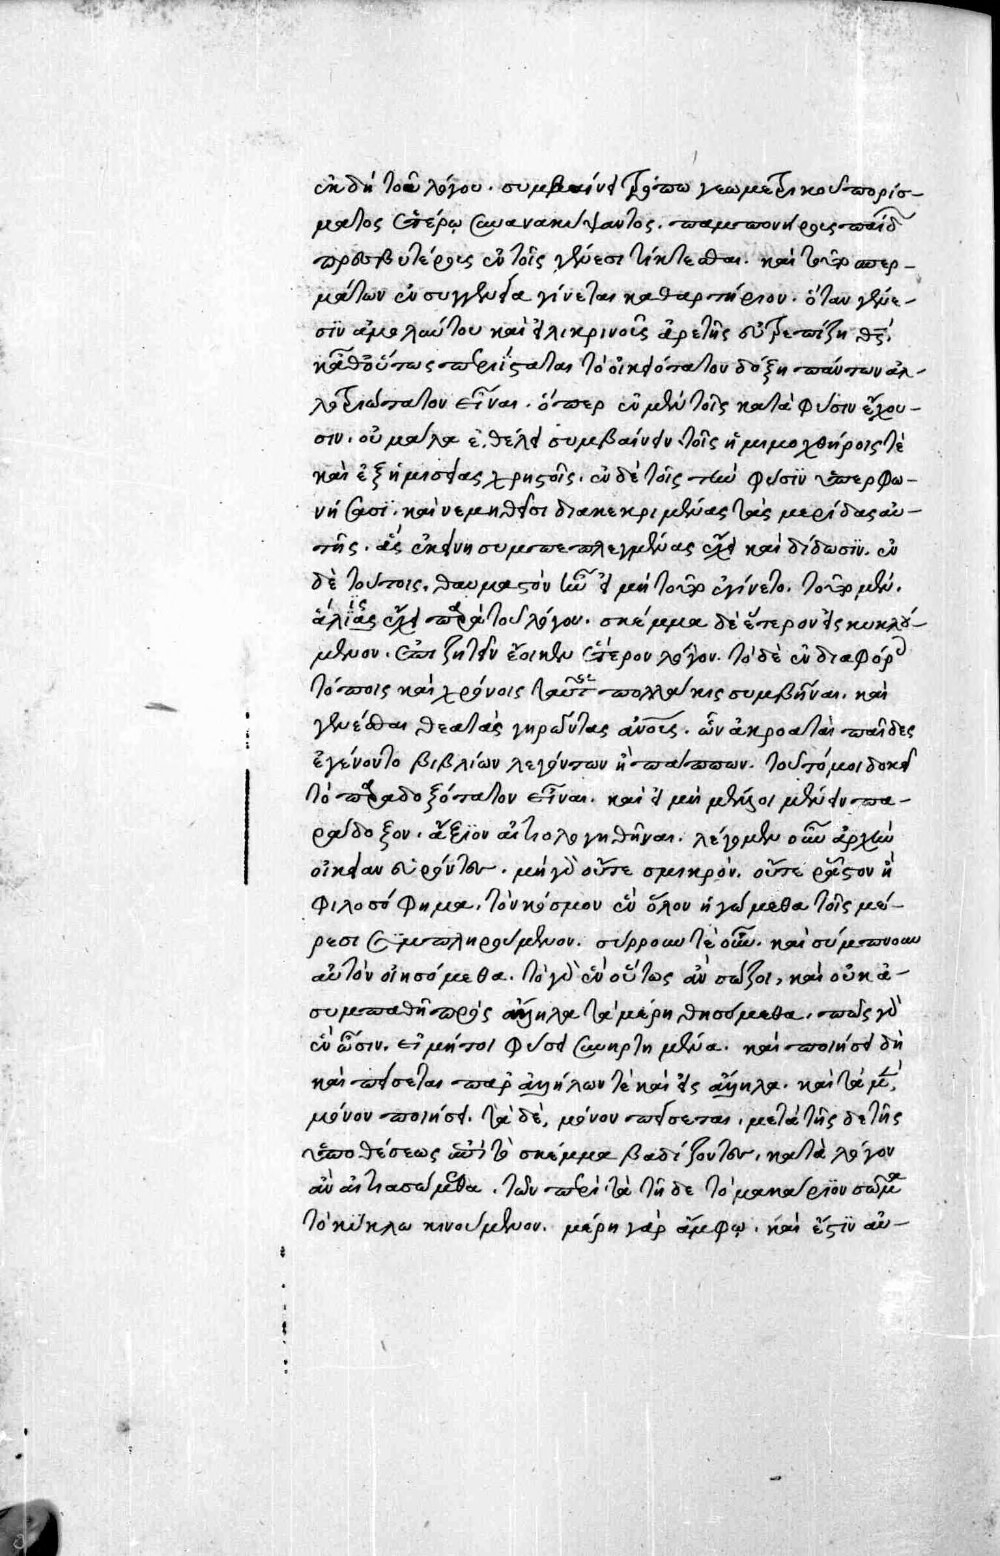 ἐκ δὴ τοῦ λόγου. συμβαίνει τρόπω γεωμετρικοῦ πορίσ-
ματος ἑτέρῳ συνανακύψαντος. παμπονήροις παῖδ
πρεσβυτέροις ἐν τοῖς γένεσι τίκτεσθαι. καὶ τοῦτο σπερ-
μάτων ἐν συγγενεία γίνεται καθαρτήριον. ὅταν γένε-
σϊν ἀμαλαύτου καὶ εἰλικρινοῦς ἀρετῆς εὐτρεπίζη θς,
καθ' οὕτως περιΐσταται τὸ οἰκειότατον δόξη πάντων ἀλ-
λοτριώτατον εἶναι. ὅπερ ἐν μὲν τοῖς κατὰ φύσιν ἔχου-
σιν. οὐ μάλα ἐθέλει συμβαίνειν τοῖς ἡμιμοχθήροις τὲ
καὶ ἐξ ἡμισείας χρηστοῖς. ἐν δὲ τοῖς τὴν φύσϊν ὑπερφω-
νήσασϊ. καὶ νεμηθεῖσι διακεκριμένας τὰς μερίδας αὐ-
τῆς. ἃς ἐκείνη συμπεπλεγμένας ἔχει καὶ δίδωσϊν. ἐν
δὲ τούτοις, θαυμαστὸν ἦν εἰ μὴ τοῦτο ἐγίνετο. τοῦτο μὲν,
ἅλϊς ἔχει παρὰ τοῦ λόγου. σκέμμα δὲ ἕτερον εἰσκυκλού-
μενον. ἐπιζητεῖν ἔοικεν ἕτερον λόγον. τὸ δὲ ἐν διαφόρ
τόποις καὶ χρόνοις ταυτὸ πολλάκις συμβῆναι. καὶ
γενέσθαι θεατὰς γηρῶντας ἀνους. ὧν ἀκροαταὶ παῖδες
ἐγένοντο βιβλίων λεγόντων ἢ πάππων. τοῦτό μοι δοκεῖ
τὸ παραδοξότατον εἶναι. καὶ εἰ μὴ μέλλοι μένειν πα-
ράδοξον. ἄξϊον αἰτιολογηθῆναι. λέγωμεν οὖν ἀρχὴν
οἰκείαν εὑρόντες. μὴ γὰρ οὔτε σμικρὸν. οὔτε ρᾶστον ἦ
φιλοσόφημα. τὸν κόσμον ἓν ὅλον ἡγώμεθα τοῖς μέ-
ρεσι συμπληρούμενον. σύρρουν τὲ οὖν. καὶ σύμπνουν
αὐτὸν οἰησόμεθα. τὸ γὰρ ἓν οὕτως ἂν σώζοι, καὶ οὐκ ἀ-
συμπαθῆ πρὸς ἄλληλα τὰ μέρη θησόμεθα. πῶς γὰρ
ἓν ὦσιν. εἰ μή τοι φύσει συνηρτημένα. καὶ ποιήσει δὴ
καὶ πείσεται παρ' ἀλλήλων τὲ καὶ εἰς ἄλληλα. καὶ τὰ μὲν,
μόνον ποιήσει. τὰ δὲ, μόνον πείσεται. μετὰ τῆς δὲ τῆς
ὑποθέσεως ἐπὶ τὸ σκέμμα βαδίζοντες. κατὰ λόγον
ἂν αἰτιασώμεθα. τῶν περὶ τὰ τῆδε τὸ μακάρϊον σῶμα
τὸ κύκλω κινούμενον. μέρη γὰρ ἄμφω. καὶ ἔστϊν αὐ-